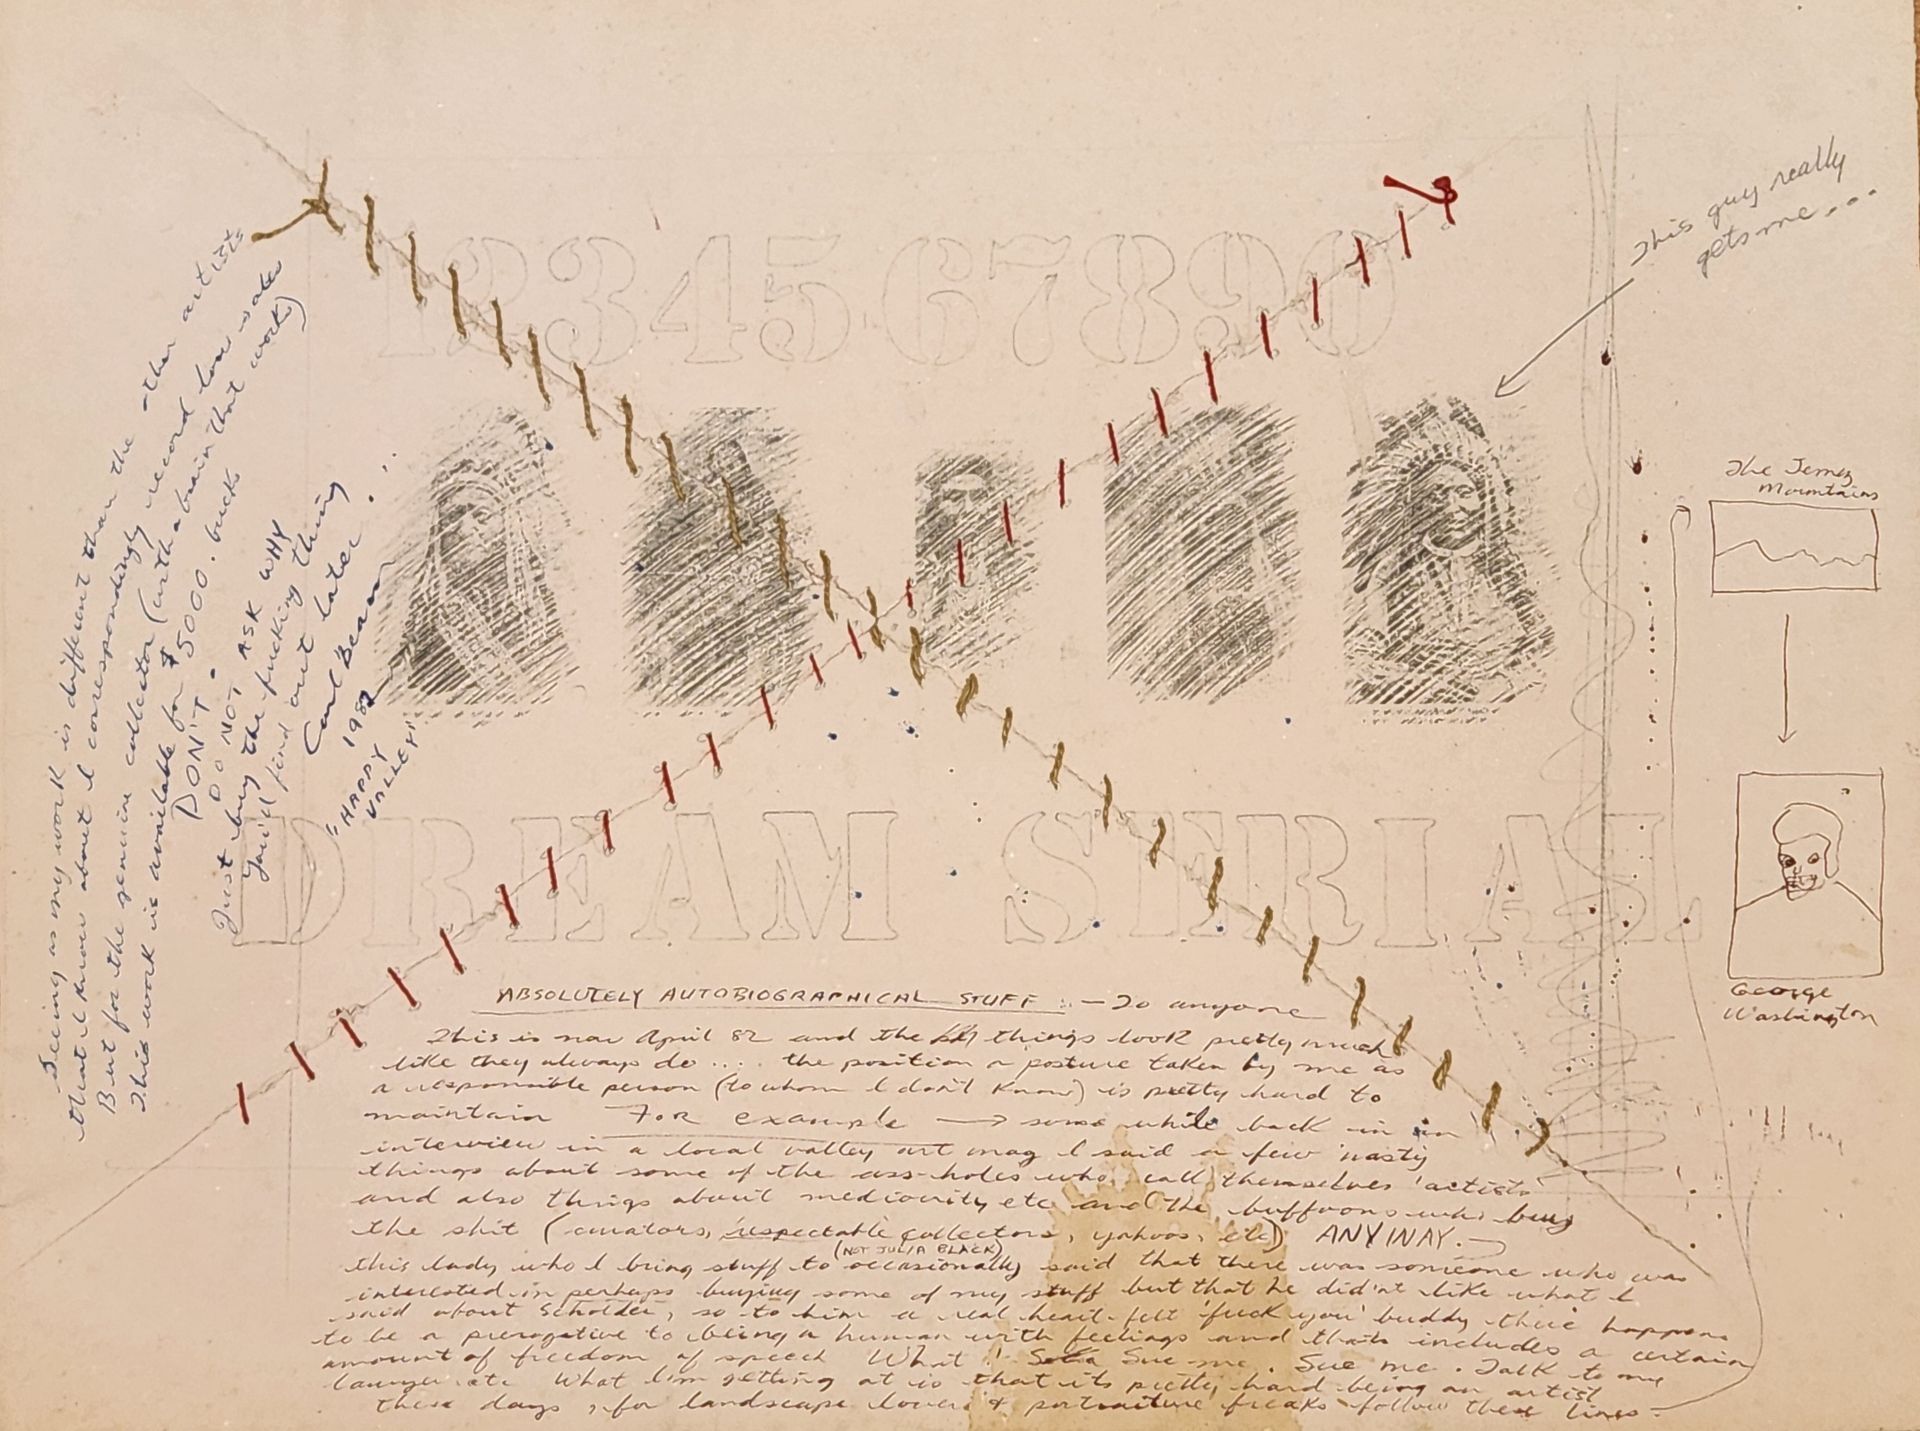 1234567890
This guy really
gets me...
The Jemez
Mountains
George
Washington
DREAM SERIAL
Seeing as my work is different than the other artists
that I know about I correspondingly record low sales
But for the genuine collector (with a brain that works)
This work is available for $5000. bucks
DON'T.
DO NOT ASK WHY
Just buy the fucking thing
You'll find out later...
Carl Beam
1982
"HAPPY
VALLEY"
ABSOLUTELY AUTOBIOGRAPHICAL STUFF — To anyone
This is now April 82 and the things look pretty much
like they always do .... the position a posture taken by me as
a responsible person (to whom I don't know) is pretty hard to
maintain For example → some while back in an
interview in a local valley art mag I said a few nasty
things about some of the ass-holes who call themselves 'artists'
and also things about mediocrity etc and the buffoons who buy
the shit (curators, respectable collectors, yahoos, etc) ANYWAY.
(NOT JULIA BLACK)
this lady who I bring stuff to occasionally said that there was someone who was
interested in perhaps buying some of my stuff but that he did'nt like what I
said about Scholder, so to him a real heart-felt 'fuck you' buddy there happens
to be a prerogative to being a human with feelings and thats includes a certain
amount of freedom of speech What! Sue me. Sue me. Talk to my
lawyer etc. What I'm getting at is that its pretty hard being an artist
these days, for landscape lovers & portraiture freaks follow these lines